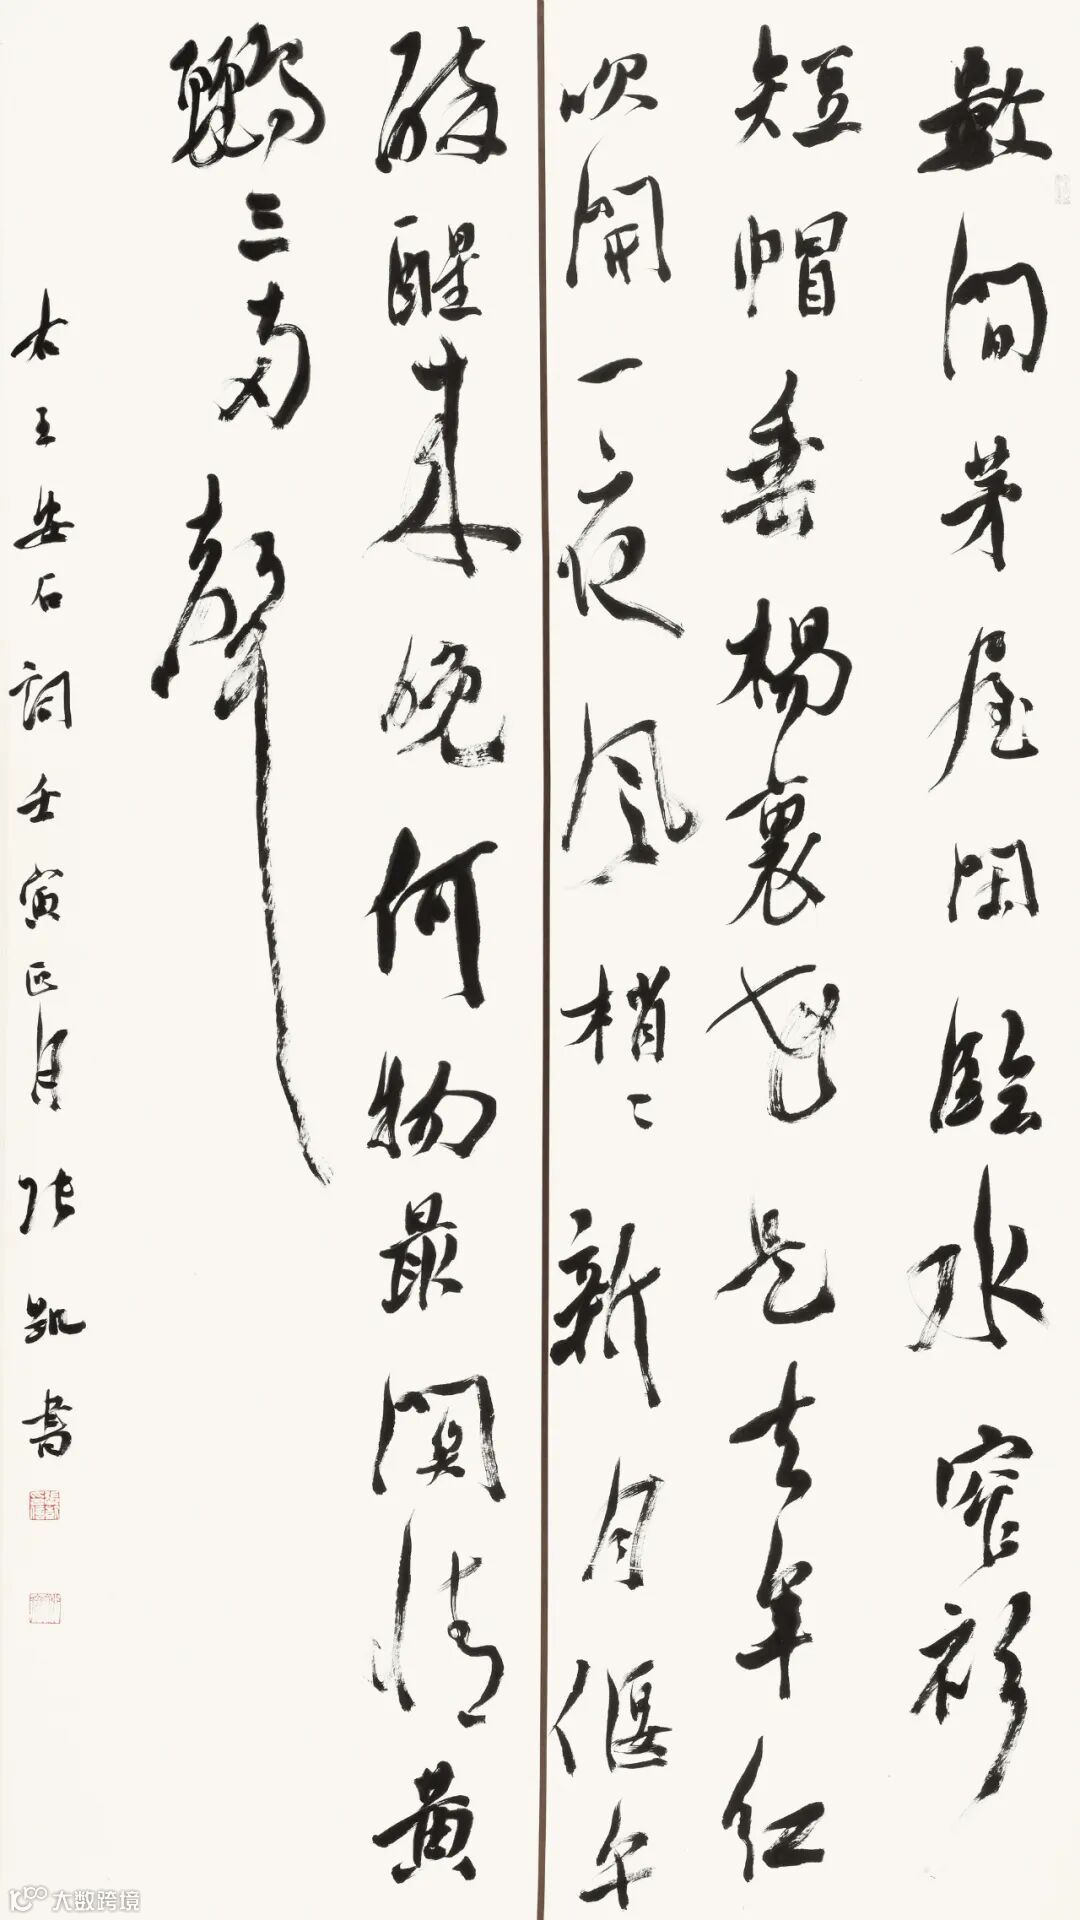 數間茅屋閑臨水窄衫
短帽垂楊裏花是去年紅
吹開一夜風梢〻新月偃午
醉醒來晚何物最關情黃
鸝三兩聲
右王安石詞壬寅正月張凱書
大数跨境